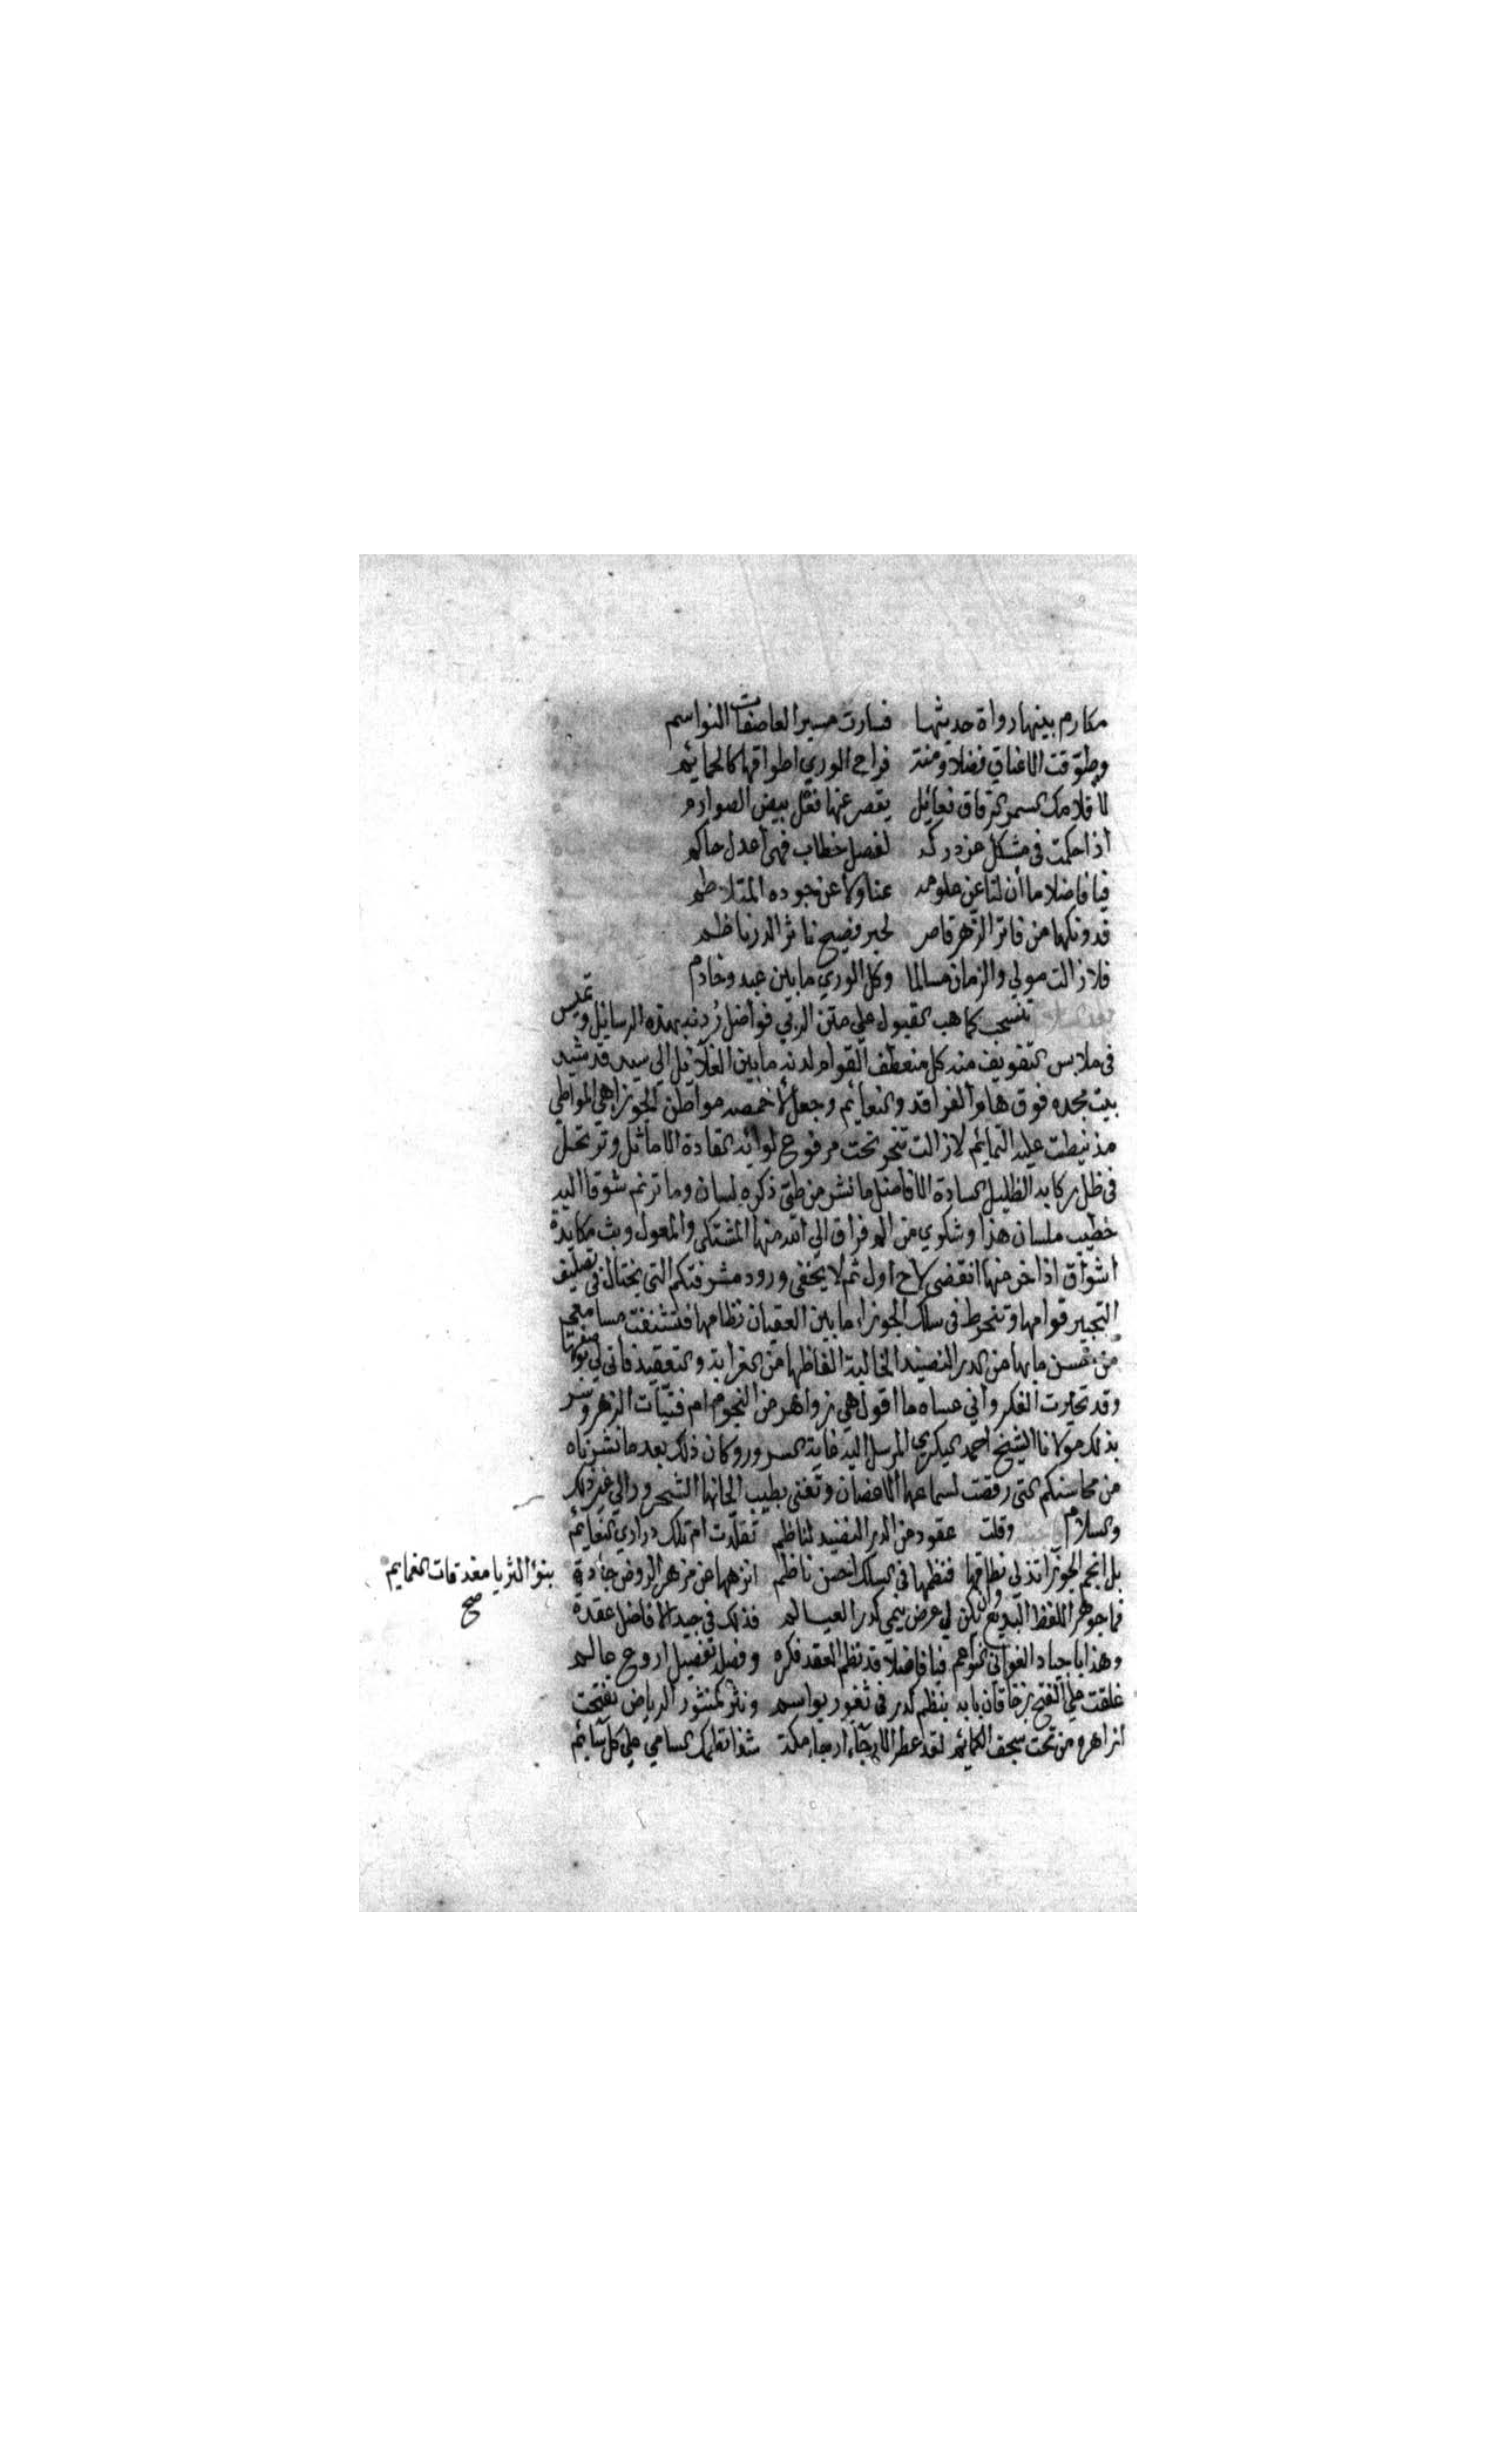 مكارم بينها رواة حديثها فسارت مسير العاصفات النواسم
وطوّقت الاعناق فضلا ومنة فراح الوري اطواقها كالحمائم
لاقلامك السمر الرقاق فعائل يقصر عنها فعل بيض الصوارم
اذا حكمت في مشكل عز دركه لفصل خطاب فهي اعدل حاكم
فيا فاضلا ما أن لنا عن علومه غنا ولا عن جوده المتلاطم
فدونكها من فاتر الزهر قاصر لحبر فصيح ناثر الدر ناظم
فلا زالت مولي والزمان مسالما وكل الوري ما بين عبد وخادم
تنسحب كما هب القبول علي متن الربي فواضل ردنه بهذه الرسائل وتميس
في ملابس التفويف منه كل منعطف القوام لدنه ما بين الغلائل الي سيد قد شيد
بيت مجده فوق هام الفراقد والنعائم وجعل لاخمصه مواطن الجوزاهي المواطي
مذ نيطت عليه التمائم لا زالت تنحو تحت مرفوع لوائه القادة الاماثل وترتحل
في ظل ركابه الظليل السادة الافاضل ما نشر من طي ذكره لسان وما ترنم شوقا اليه
خطيب ملسان هذا وشكوي من الم فراق الي الله منها المشتكي والمعول وبث مكايدة
اشواق اذا اخر منها انقضي لاح اول ثم لا يخفي ورود مشرفتكم التي يختال في تصليف
التحبير قوامها وتنخرط في سلك الجوزاء ما بين العقيان نظامها فتشنفت مسامعي
من حسن ما بها من الدر النضيد الخالية الفاظها من الغرابة والتعقيد فاتي لي بوصفها
وقد تحايرت الفكر واني عساه ما اقول هي زواهر من النجوم ام فتيات الزهر وسر
بذلك مولانا الشيخ احمد البكري المرسل اليه غاية السرور وكان ذلك بعد ما نشرناه
من محاسنكم التي رقصت لسماعها الاغصان وتغني بطيب الحانها الشحرور الي غير ذلك
والسلام وقلت عقود من الدر النضيد لناظم تقلدت ام تلك دراري النعائم
بل انجم الجوزا تدلي نطاقها فنظمها في السلك احسن ناظم ازهر ها من مزهر الروض جاده بنوء الثريا مغدقات الغمايم
صح
فما جوهر اللفظ البديع وان يكن لي عرض ينمي لدر العيالم فذلك في جيد الافاضل عقده
وهذا باجياد الغواني النواعم فيا فاضلا قد نظم العقد فكره وفصله تفصيل اروع عالم
غلقت علي الفتح بن خاقان بابه بنظم كدر في ثغور بواسم ونثر كمنثور الرياض تفتحت
ازاهره من تحت سجف الكمائم لقد عطر الارجاء ارجاء مكة شذا نظمك السامي علي كل شائم